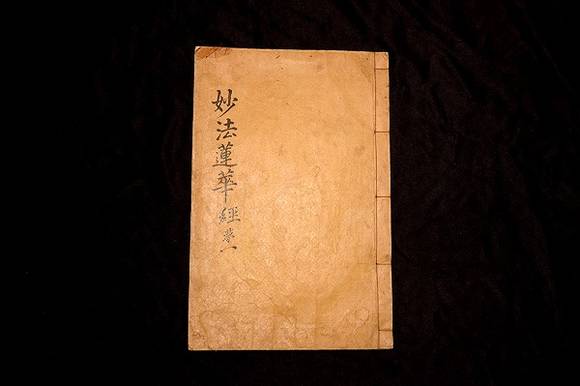 妙法蓮華經卷一